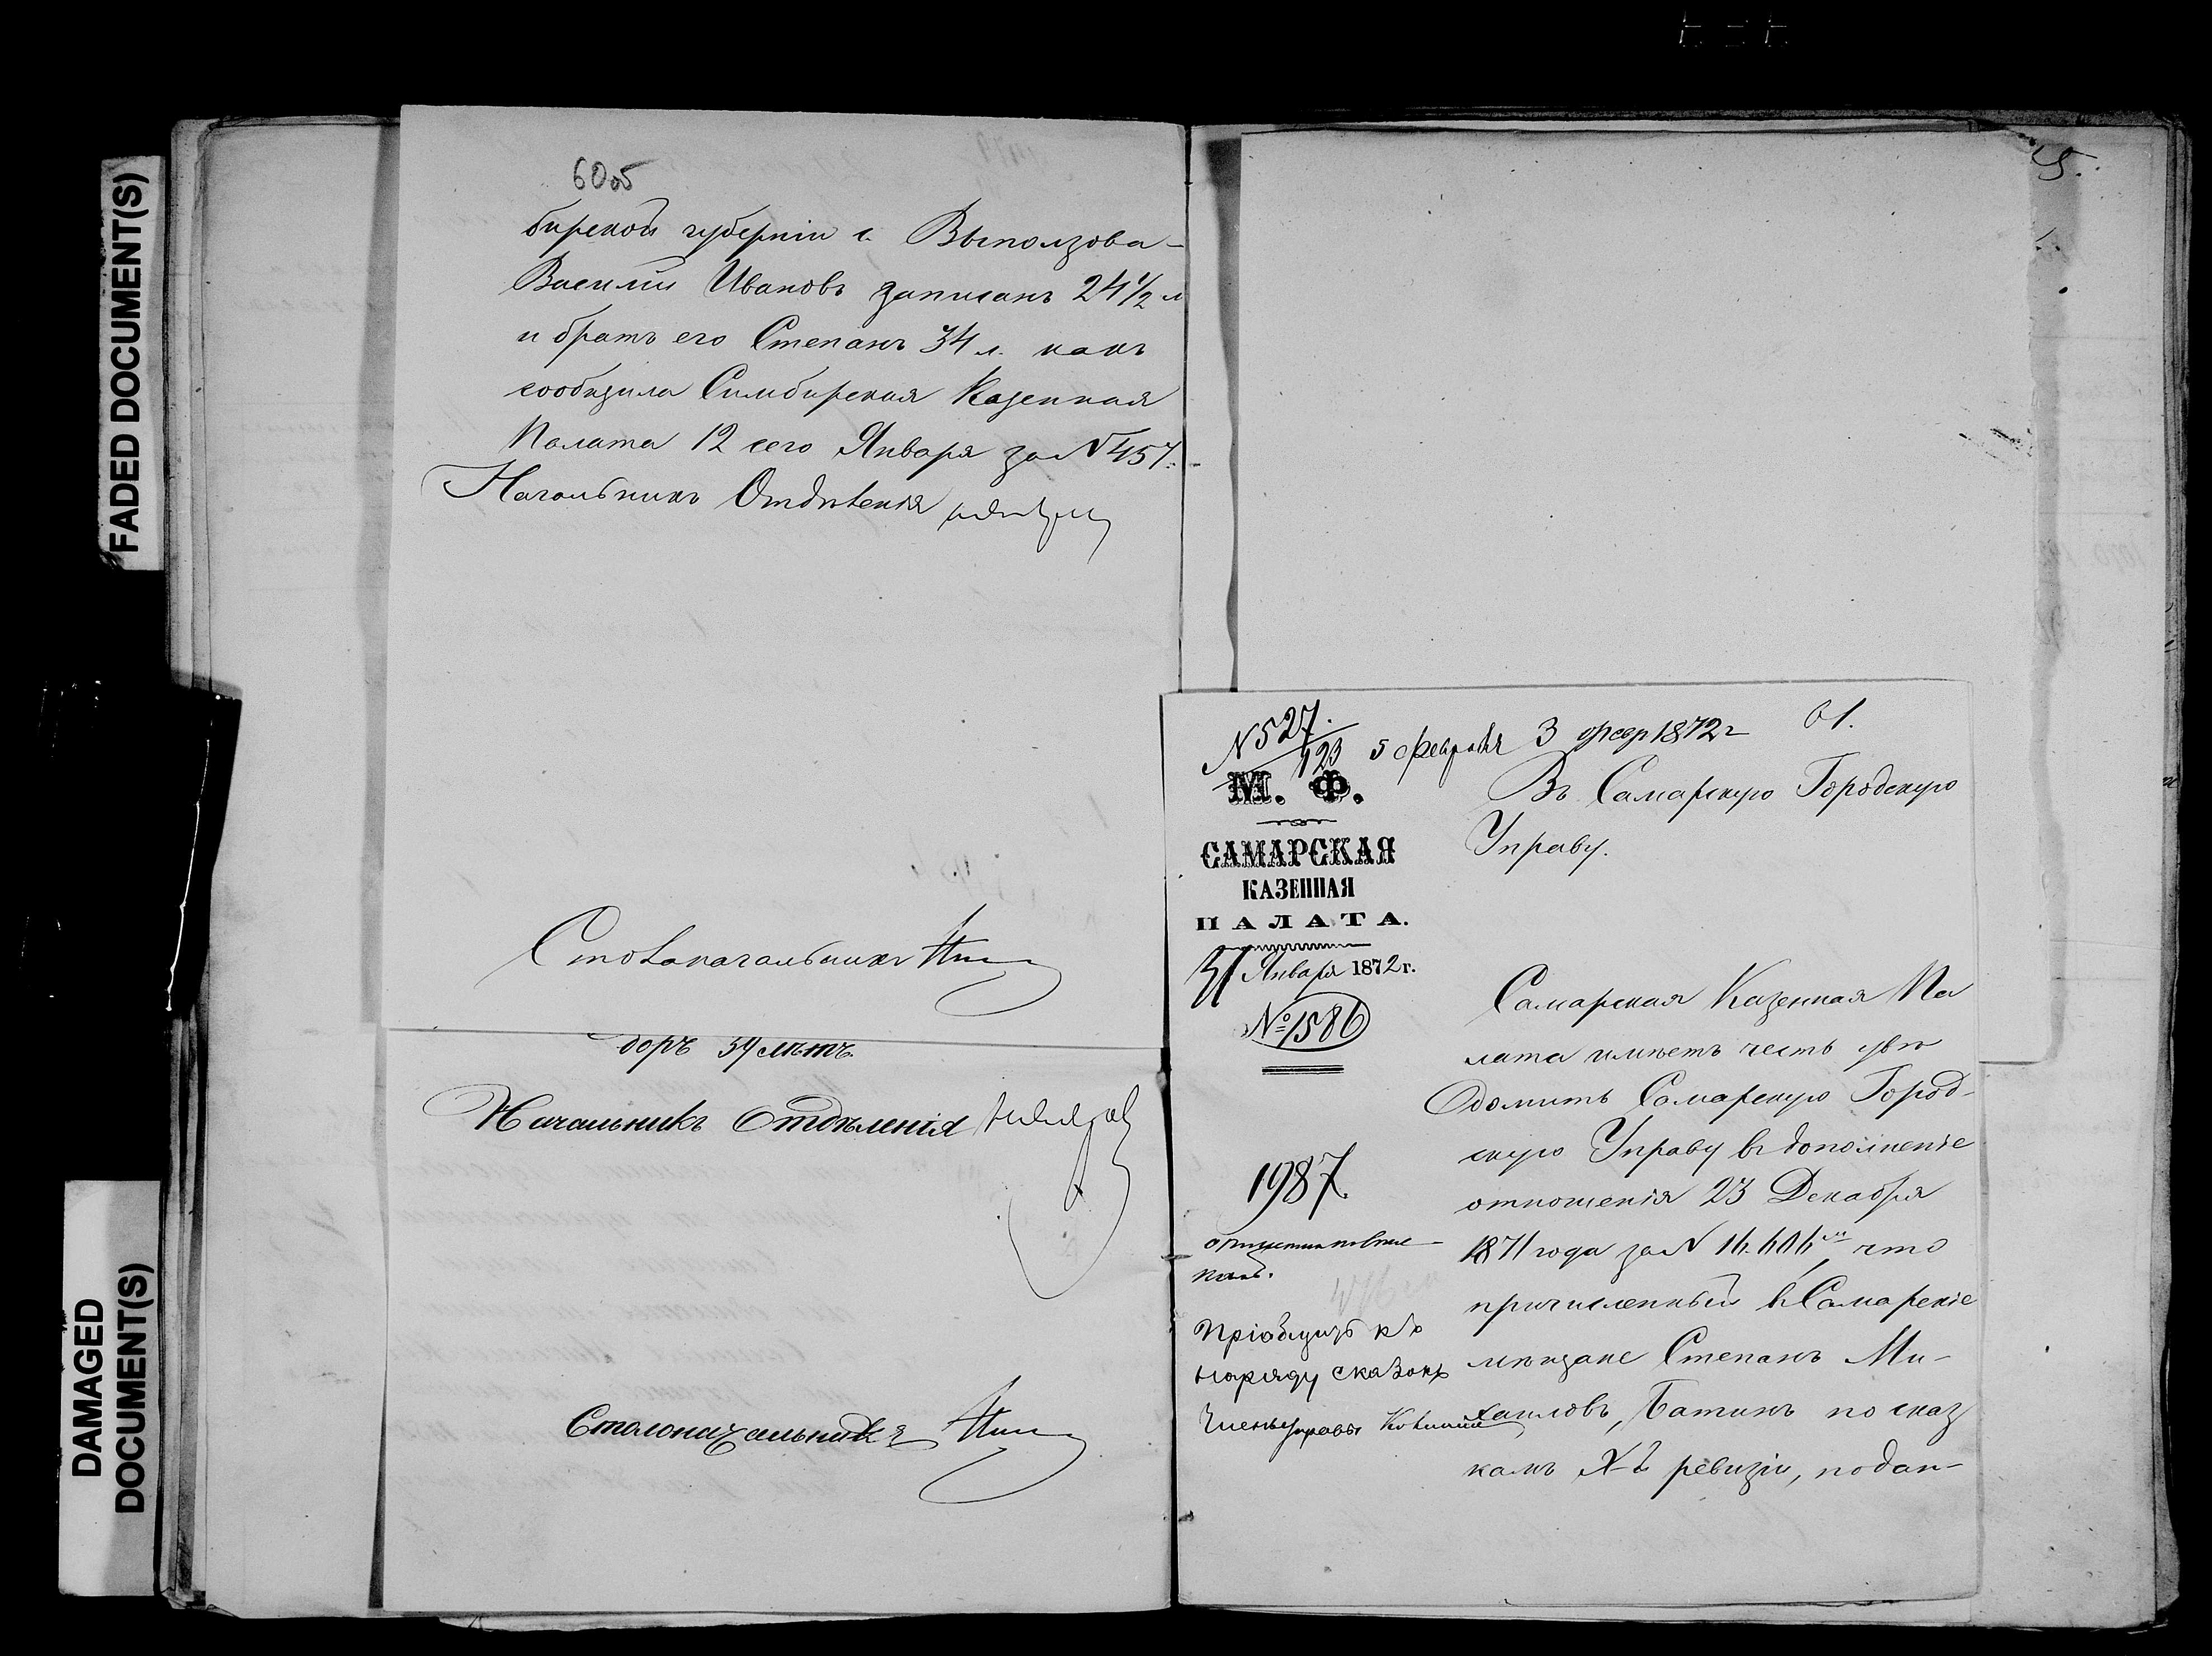 FADED DOCUMENT(S)
DAMAGED
DOCUMENT(S)
60об
бирской губернiи с. Выползова-
Василiй Ивановъ записанъ 24 1/2 л
и братъ его Степанъ 34 л. какъ
сообщила Симбирская Казенная
Палата 12 сего Января за N 457.
Начальникъ Отдѣленiя
Столоначальникъ
доръ 34 лѣтъ.
Начальникъ Отдѣленiя
Столоначальникъ
5.
N 527.
123
5 Февраля 3 февр 1872 г
61.
М. Ф.
САМАРСКАЯ
КАЗЕННАЯ
ПАЛАТА.
31 Января 1872 г.
№ 1586
1987.
Прiобщить къ
наряду сказокъ
Членъ Управы
Въ Самарскую Городскую
Управу.
Самарская Казенная Па
лата имѣетъ честь увѣ
домить Самарскую Город-
скую Управу въ дополненiе
отношенiя 23 Декабря
1871 года за N 16.606, что
причисленный въ Самарскiе
мѣщане Степанъ Ми-
хаиловъ Батинъ по сказ
камъ X-й ревизiи, подан-